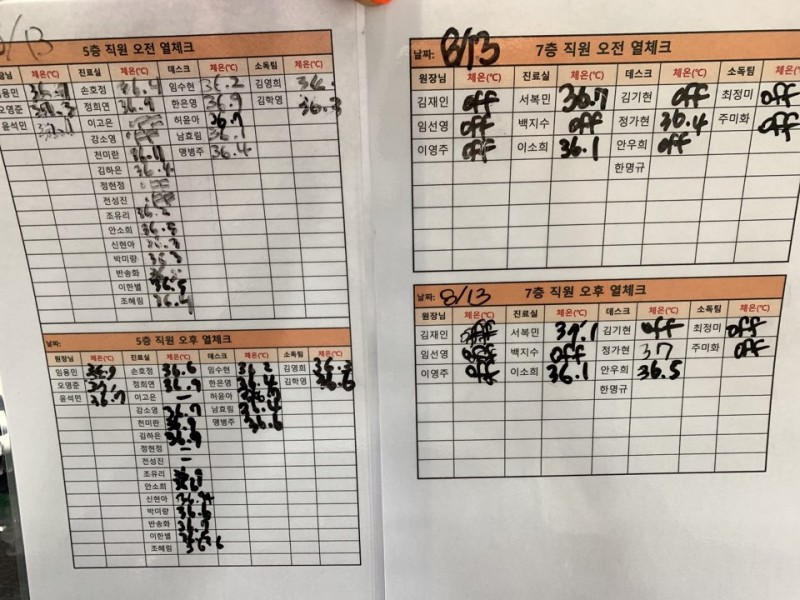 8/13
5층 직원 오전 열체크
원장님 체온(℃) 진료실 체온(℃) 데스크 체온(℃) 소독팀 체온(℃)
임용민 손호정 36.4 임수현 36.2 김영희 36.
오영준 정희연 36.9 한은영 36.9 김학영 36.3
윤석민 이고은 허윤아 36.7
김소영 남효림 36.1
천미란 명병주 36.4
김하은 36.4
정현정
전성진
조유리
안소희 36.5
신현아
박미량
반송화
이한별 36.5
조혜림 36.4
날짜:
5층 직원 오후 열체크
원장님 체온(℃) 진료실 체온(℃) 데스크 체온(℃) 소독팀 체온(℃)
임용민 36.9 손호정 36.6 임수현 36.2 김영희
오영준 정희연 36.9 한은영 36.4 김학영 36.6
윤석민 36.7 이고은 — 허윤아
김소영 36.7 남효림 36.4
천미란 명병주 36.6
김하은 36.9
정현정 —
전성진 —
조유리
안소희
신현아
박미량 36.6
반송화 36.7
이한별
조혜림
날짜: 8/13
7층 직원 오전 열체크
원장님 체온(℃) 진료실 체온(℃) 데스크 체온(℃) 소독팀 체온(℃)
김재인 off 서복민 36.7 김기현 off 최정미 off
임선영 off 백지수 off 정가현 36.4 주미화 off
이영주 off 이소희 36.1 안우희 off
한명규
날짜: 8/13
7층 직원 오후 열체크
원장님 체온(℃) 진료실 체온(℃) 데스크 체온(℃) 소독팀 체온(℃)
김재인 off 서복민 김기현 off 최정미 off
임선영 off 백지수 off 정가현 37 주미화 off
이영주 off 이소희 36.1 안우희 36.5
한명규